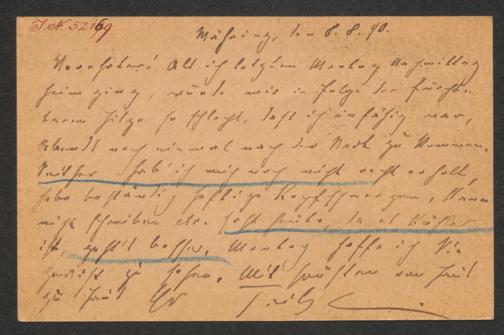 I.N. 52169
Währing, den 8.8.90.
Verehrter! Als ich letzten Montag Nachmittag
heim ging, wurde mir in Folge der furcht-
baren Hitze so schlecht, daß ich unfähig war,
Abends noch einmal nach der Stadt zu kommen.
Seither hab' ich mich noch nicht recht erholt,
habe beständig heftige Kopfschmerzen, kann
nicht schreiben etc. Erst heute, da es kühler
ist, geht's besser. Montag hoffe ich Sie
zu sehen. Mit Grüßen von Haus
zu Haus Ihr